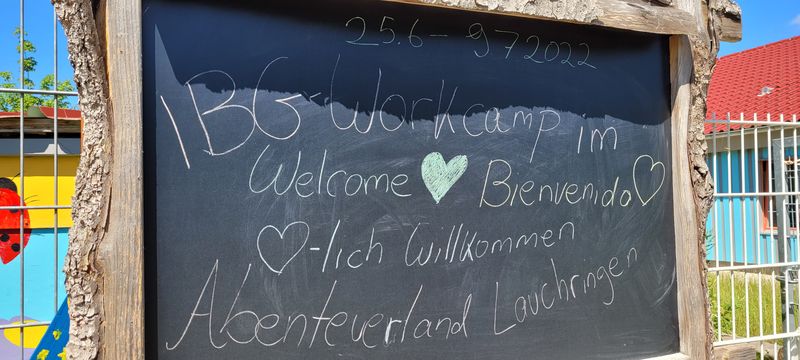 25.6- 9 7 2022
IBG-Workcamp im
Welcome Bienvenido
-lich Willkommen
Abenteuerland Lauchringen